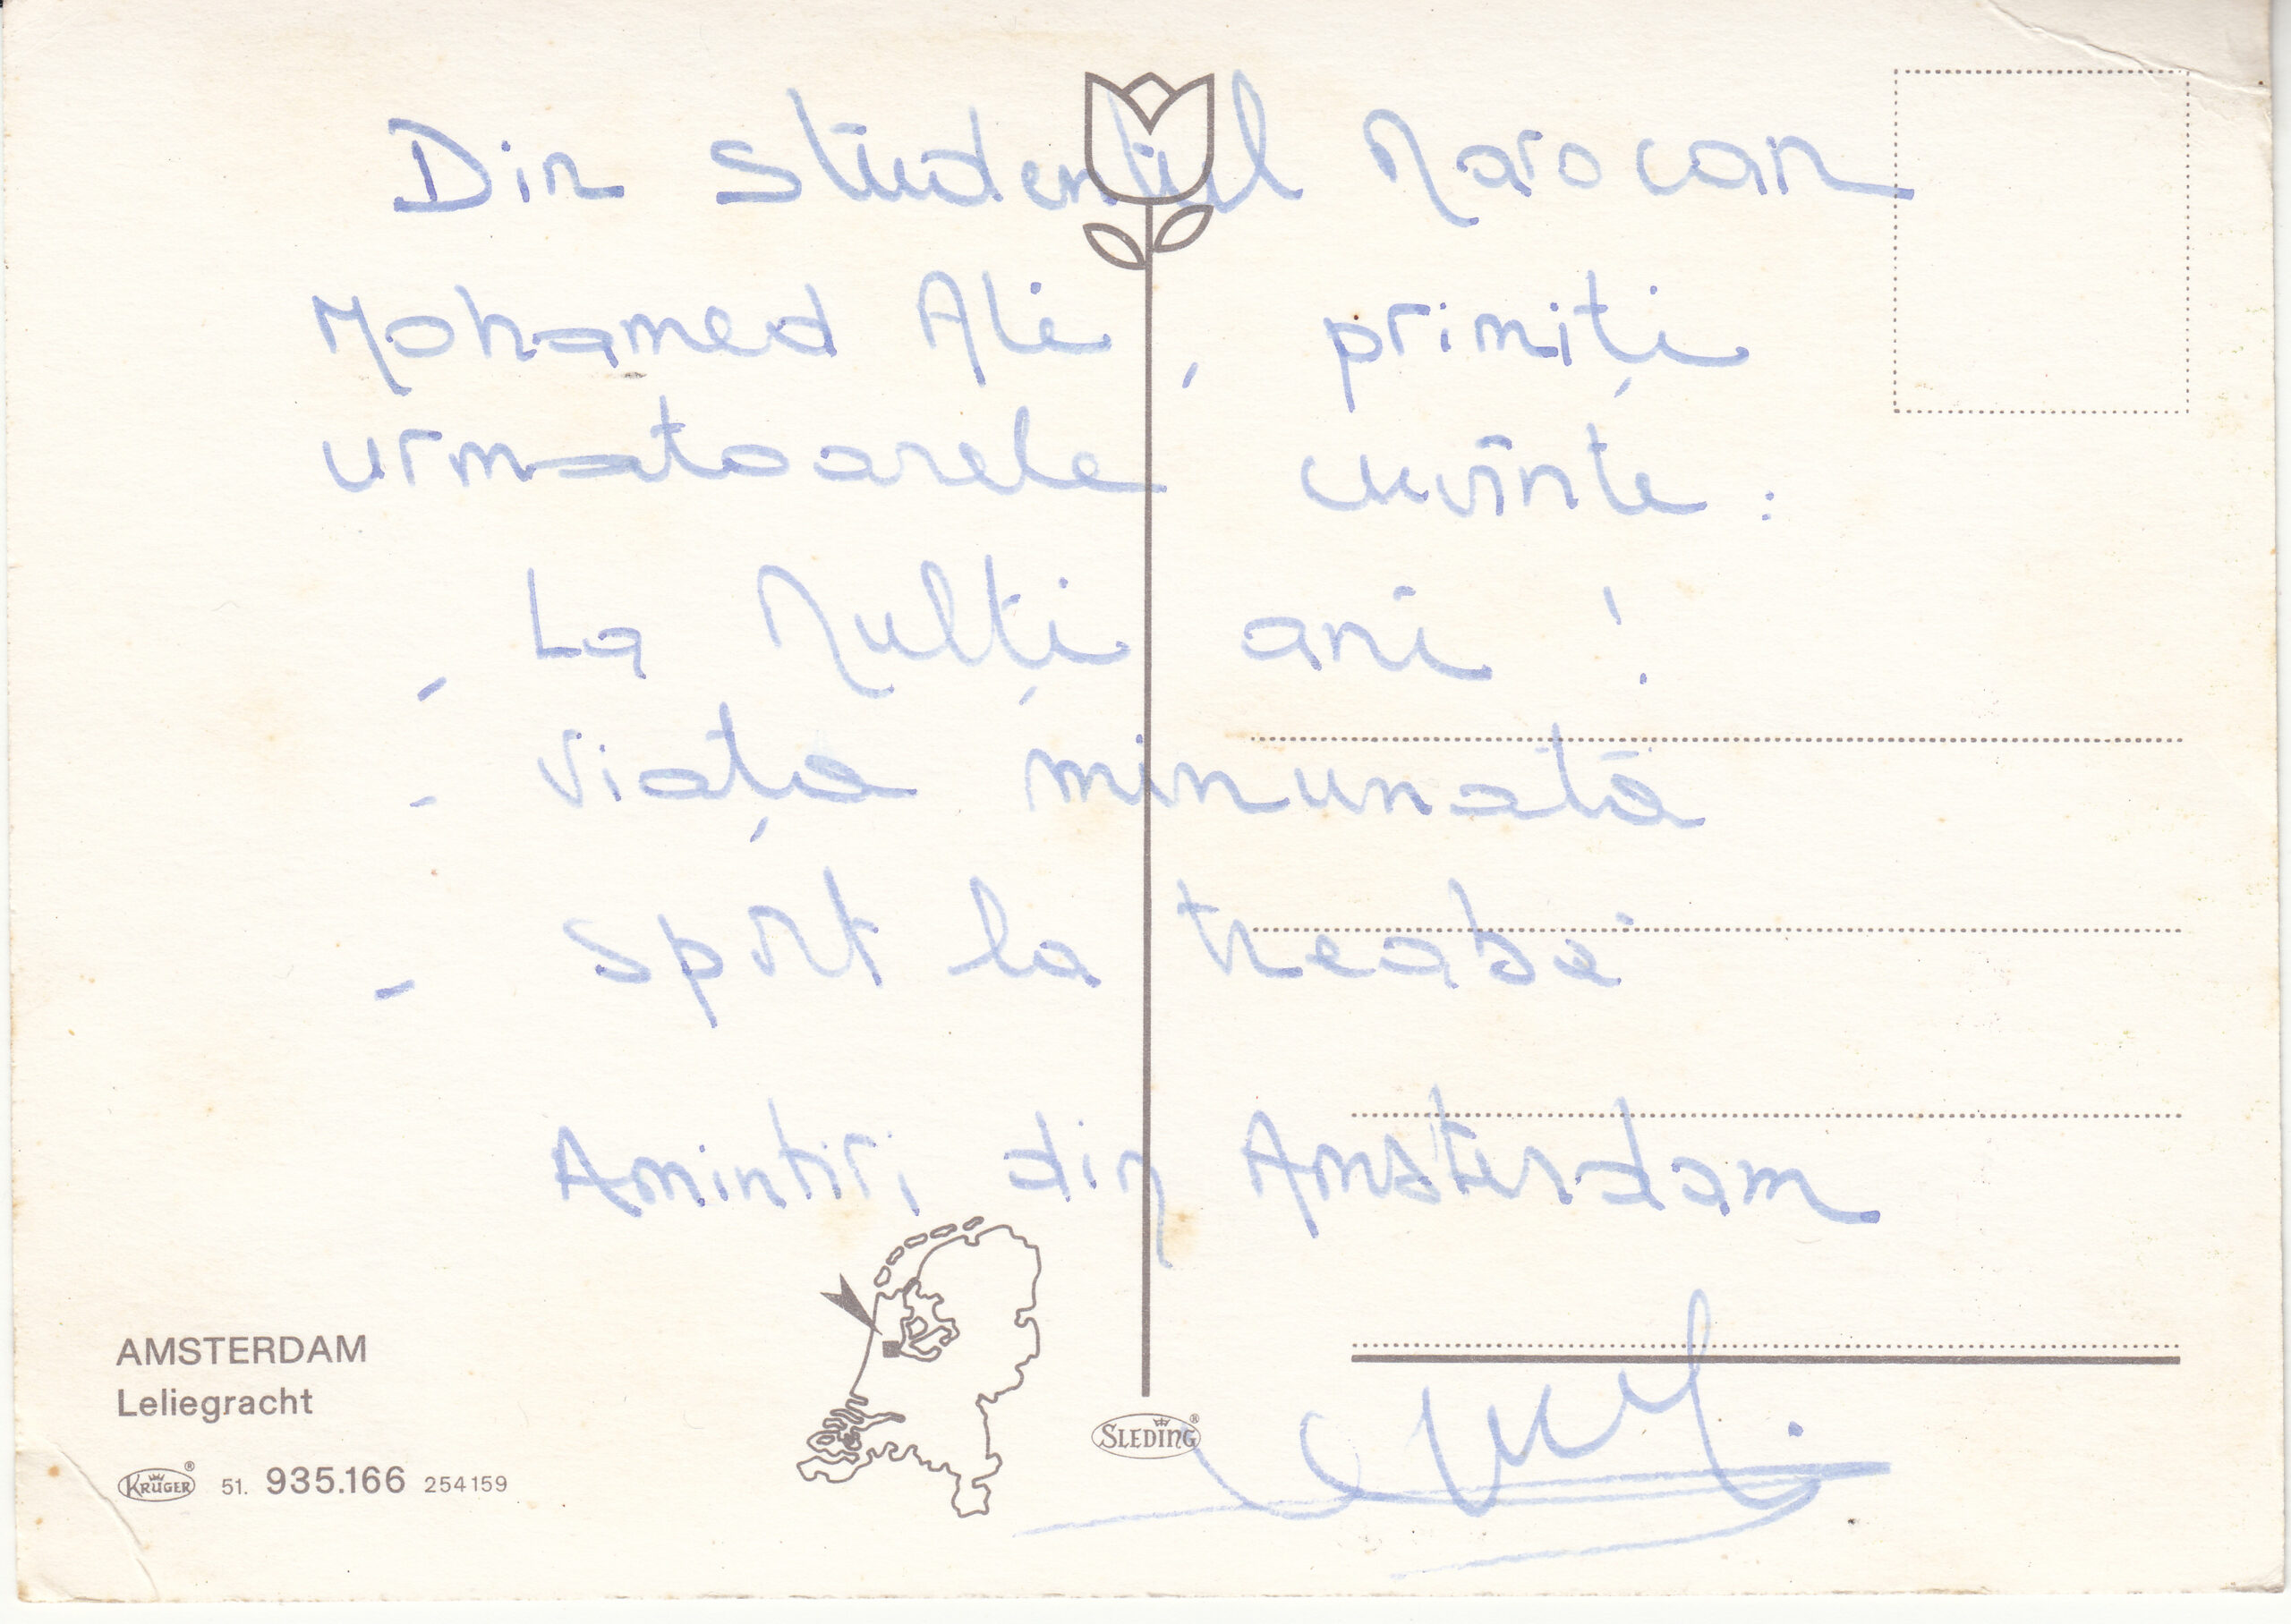 Din Studentul Marocan
Mohamed Ali, primiți
urmatoarele cuvinte :
- La Mulți ani !
- viața minunată
- sport la treabă
Amintiri din Amsterdam
AMSTERDAM
Leliegracht
KRÜGER® 51. 935.166 254159
SLEDING®